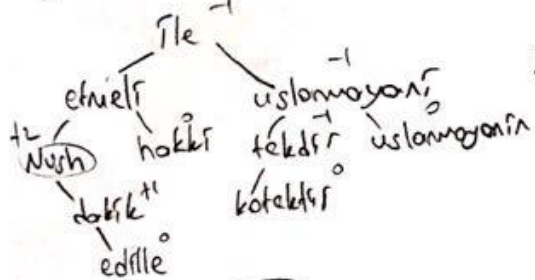 ile -1
etmeli uslanmayanı -1
+2 Nush hakkı 0 tekdir -1 uslanmayanın 0
+1 kötektir 0
edille 0